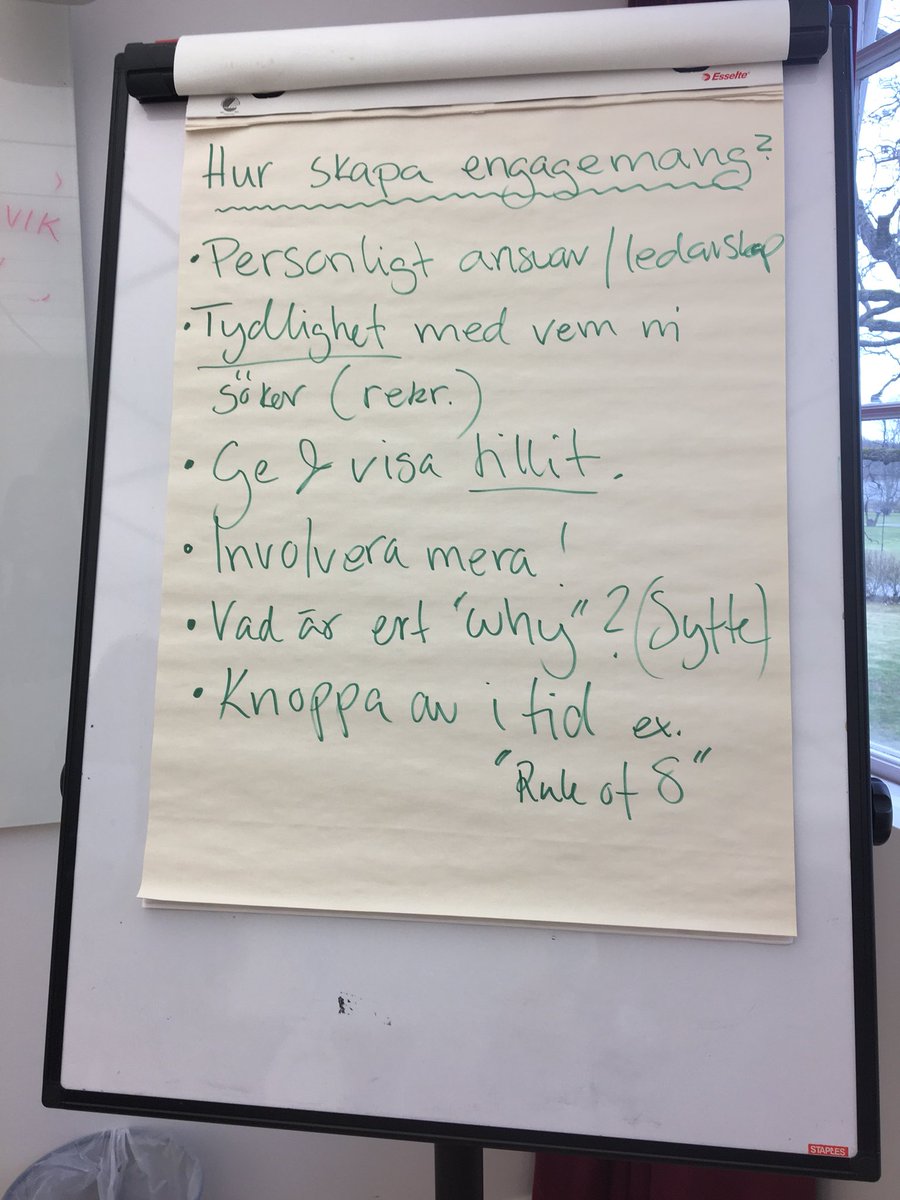 Esselte
Hur skapa engagemang?
• Personligt ansvar / ledarskap
• Tydlighet med vem ni
söker (rekr.)
• Ge & visa tillit.
• Involvera mera!
• Vad är ert "why"? (Syfte)
• Knoppa av i tid ex.
"Rule of 8"
VIK
STAPLES